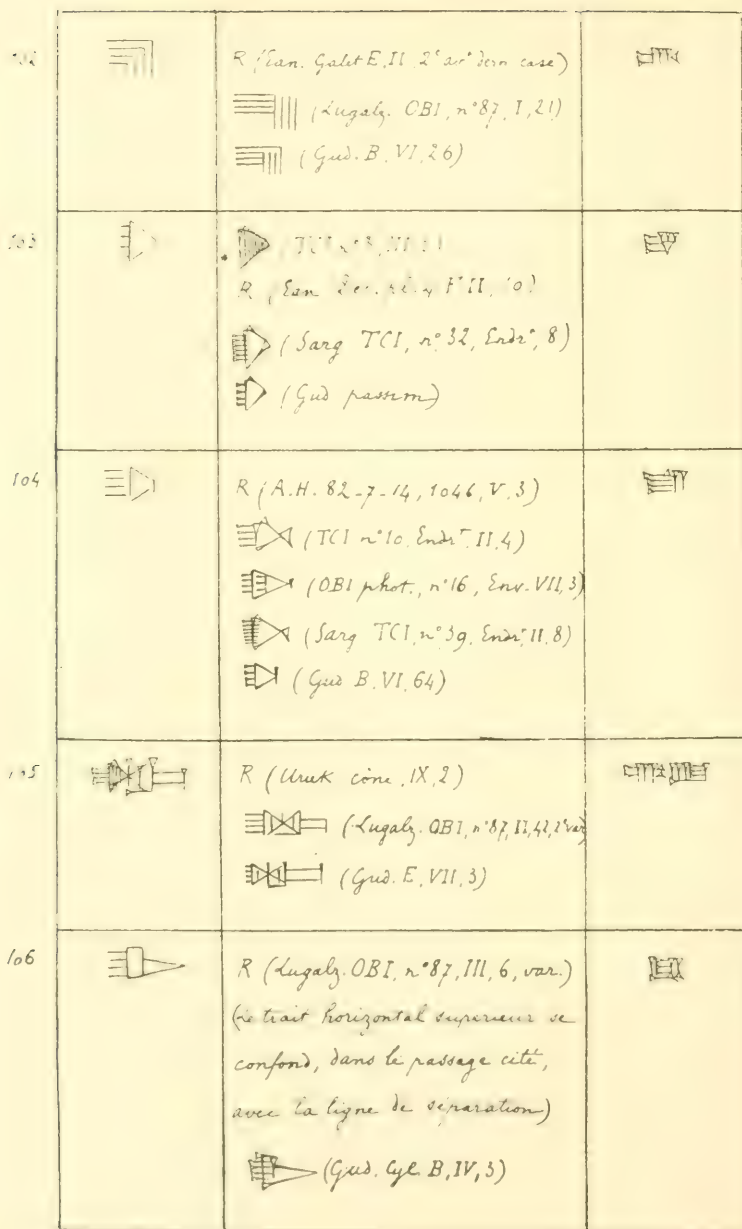 102
R (Ean. Galet E, II, 2e avt dern case)
(Lugalz. OBI, n° 87, I, 21)
(Gud. B, VI, 26)
103
TCI n° 
R (Ean II, 10)
(Sarg TCI, n° 32, Endrt, 8)
(Gud passim)
104
R (A.H. 82-7-14, 1046, V, 3)
(TCI n° 10, Endrt, II, 4)
(OBI phot., n° 16, Env. VII, 3)
(Sarg TCI, n° 39, Endrt, II, 8)
(Gud B, VI, 64)
105
R (Uruk cône, IX, 2)
(Lugalz. OBI, n° 87, II, 42, 2e var)
(Gud. E, VII, 3)
106
R (Lugalz. OBI, n° 87, III, 6, var.)
(Le trait horizontal supérieur se
confond, dans le passage cité,
avec la ligne de séparation)
(Gud. Cyl. B, IV, 3)